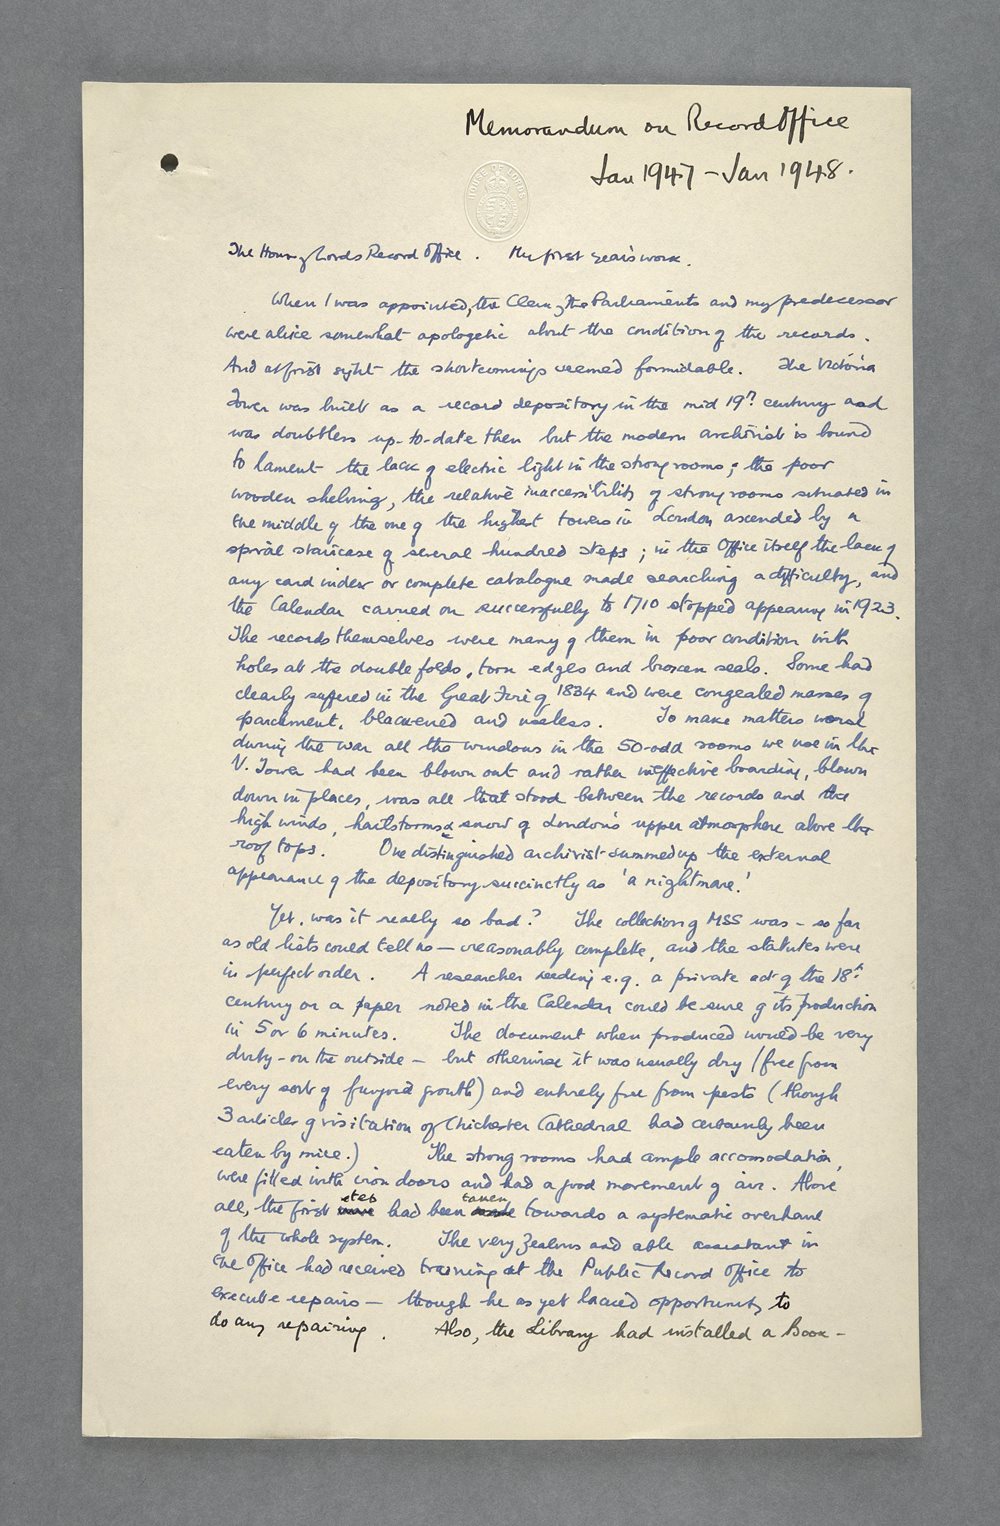 Memorandum on Record Office
Jan 1947 - Jan 1948.
HOUSE OF LORDS
The House of Lords Record Office. My first year's work.
When I was appointed, the Clerk of the Parliaments and my predecessor
were alike somewhat apologetic about the condition of the records.
And at first sight the shortcomings seemed formidable. The Victoria
Tower was built as a record depository in the mid 19th century and
was doubtless up-to-date then but the modern archivist is bound
to lament the lack of electric light in the strong rooms; the poor
wooden shelving, the relative inaccessibility of strong rooms situated in
the middle of the one of the highest towers in London ascended by a
spiral staircase of several hundred steps; in the Office itself the lack of
any card index or complete catalogue made searching a difficulty, and
the Calendar carried on successfully to 1710 stopped appearing in 1923.
The records themselves were many of them in poor condition with
holes at the double folds, torn edges and broken seals. Some had
clearly suffered in the Great Fire of 1834 and were congealed masses of
parchment, blackened and useless. To make matters worse
during the war all the windows in the 50-odd rooms we use in the
V. Tower had been blown out and rather ineffective boarding, blown
down in places, was all that stood between the records and the
high winds, hailstorms & snow of London's upper atmosphere above the
roof tops. One distinguished archivist summed up the external
appearance of the depository succinctly as 'a nightmare.'
Yet, was it really so bad? The collection of MSS was - so far
as old lists could tell us - reasonably complete, and the statutes were
in perfect order. A researcher needing e.g. a private act of the 18th
century or a paper noted in the Calendar could be sure of its production
in 5 or 6 minutes. The document when produced would be very
dirty - on the outside - but otherwise it was usually dry (free from
every sort of fungoid growth) and entirely free from pests (though
3 articles of visitation of Chichester Cathedral had certainly been
eaten by mice.) The strong rooms had ample accomodation,
were fitted with iron doors and had a good movement of air. Above
all, the first step had been taken towards a systematic overhaul
of the whole system. The very zealous and able assistant in
the Office had received training at the Public Record Office to
execute repairs - though he as yet lacked opportunity to
do any repairing. Also, the Library had installed a Book-